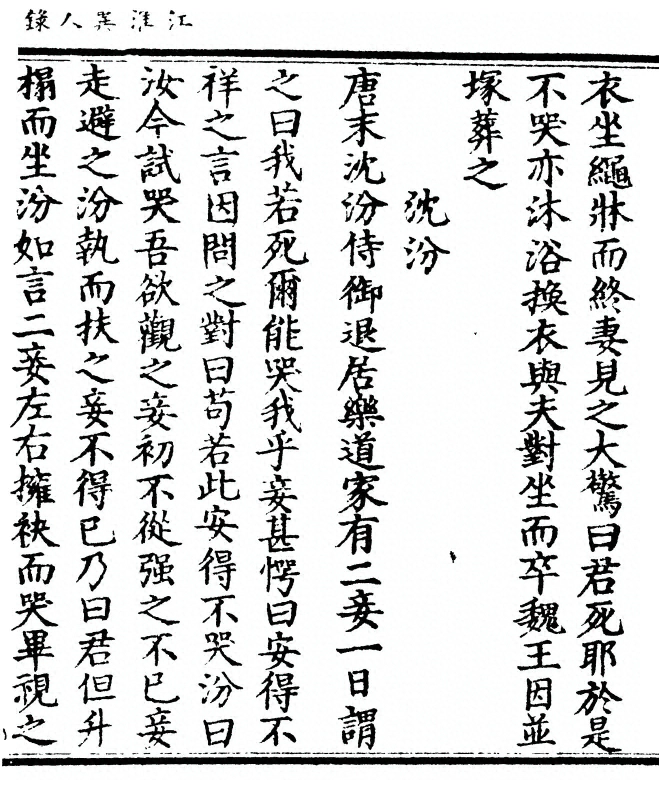 江淮異人錄
衣坐繩牀而終妻見之大驚曰君死耶於是
不哭亦沐浴換衣與夫對坐而卒魏王因並
塚葬之
沈汾
唐末沈汾侍御退居樂道家有二妾一日謂
之曰我若死爾能哭我乎妾甚愕曰安得不
祥之言因問之對曰苟若此安得不哭汾曰
汝今試哭吾欲觀之妾初不從强之不已妾
走避之汾執而扶之妾不得已乃曰君但升
榻而坐汾如言二妾左右擁袂而哭畢視之